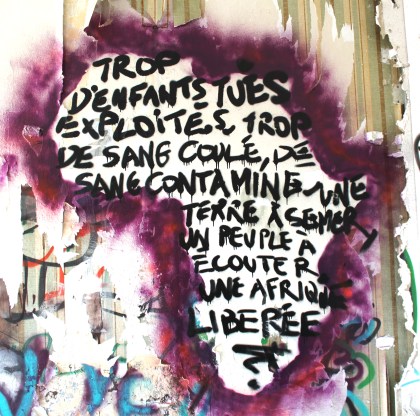 TROP
D'ENFANTS TUÉS
EXPLOITÉS & TROP
DE SANG COULÉ, DE
SANG CONTAMINÉ UNE
TERRE À SEMER
UN PEUPLE À
ÉCOUTER.
UNE AFRIQUE
LIBÉRÉE